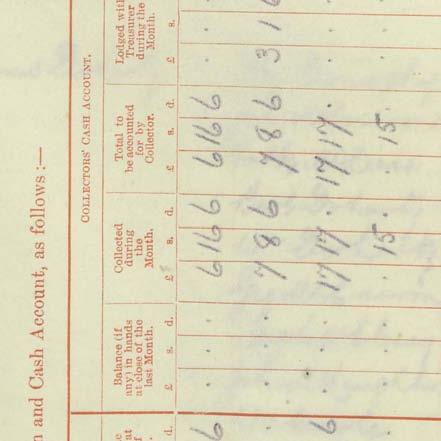 n and Cash Account, as follows :—
COLLECTORS' CASH ACCOUNT.
Balance (if any) in hands at close of the last Month.
Collected during the Month.
Total to be accounted for by Collector.
Lodged with Treasurer during the Month.
d. £ s. d. £ s. d. £ s. d. £ s.
6 . . . 6 16 6 6 16 6 . .
. . . 7 8 6 7 8 6 3 1
6 . . . 17 17 . 17 17 . . .
. . . 15 15 . .